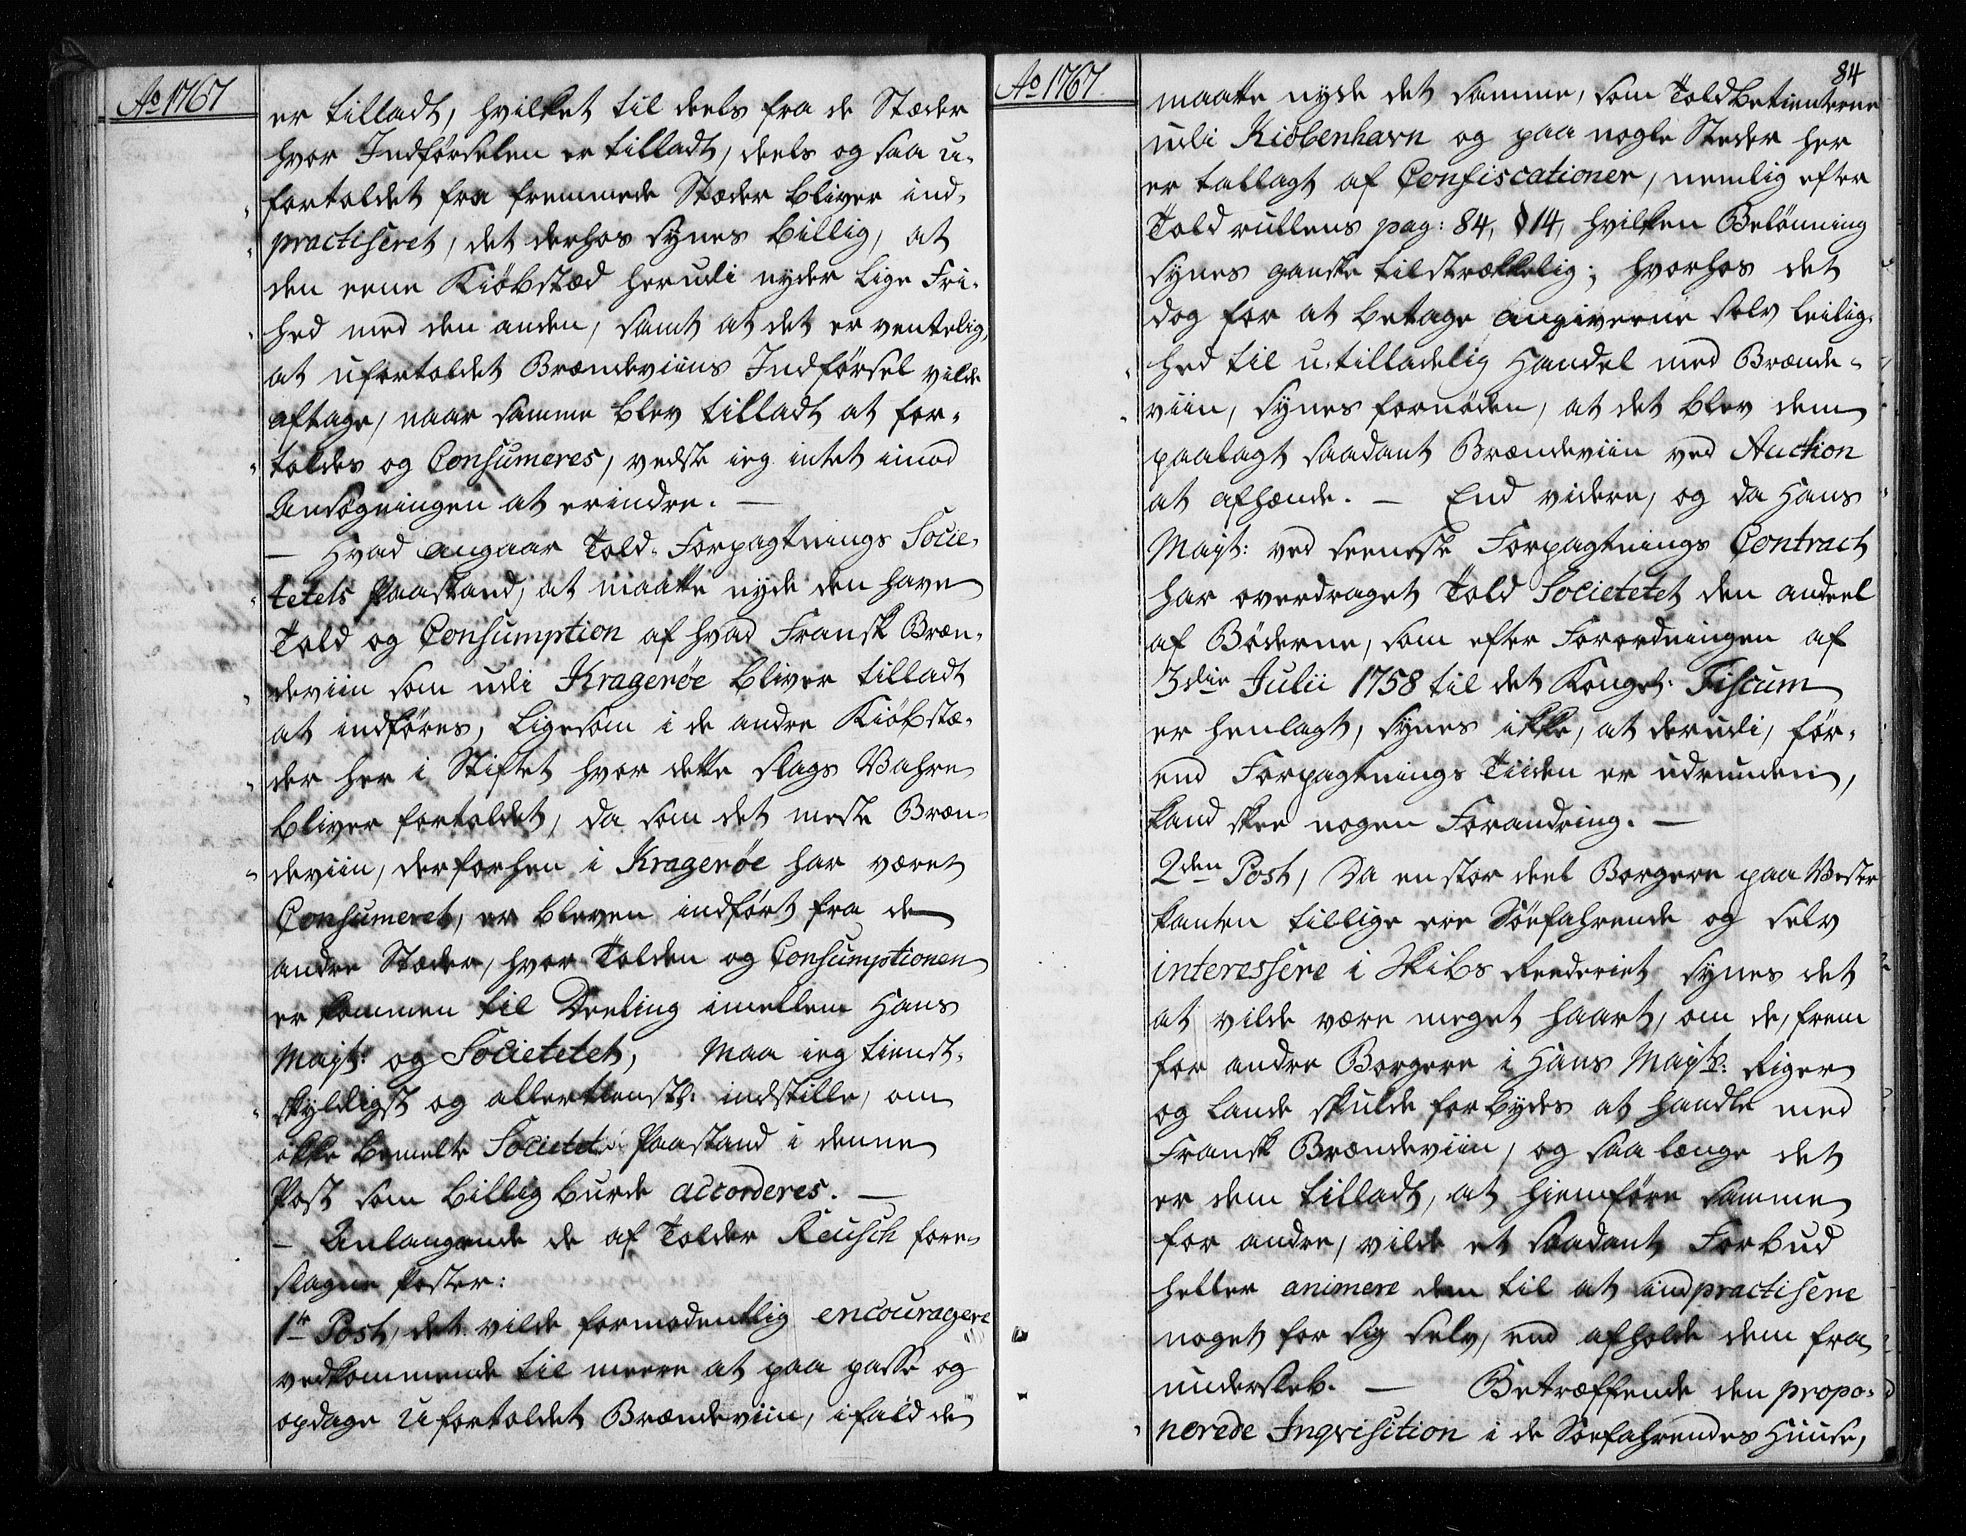 Ao 1767
er tilladt, hvilket til deels fra de Stæder
hvor Indførselen er tilladt, deels og saa u-
fortoldet fra fremmede Stæder bliver ind-
practiseret, det derhos synes billig, at
den eene Kiøbstæd herudi nyder lige Fri-
hed med den anden, samt at det er ventelig,
at ufortoldet Brændeviins Indførsel vilde
aftage, naar samme blev tilladt at for-
toldes og Consumeres, vedste ieg intet imod
Ansøgningen at erindre. —
— Hvad angaar Told-Forpagtnings Socie-
tetets Paastand, at maatte nyde den halve
Told og Consumption af hvad Fransk Bræn-
deviin som udi Kragerøe bliver tilladt
at indføres, ligesom i de andre Kiøbstæ-
der her i Stiftet hvor dette slags Vahre
bliver fortoldet, da som det meste Bræn-
deviin, der forhen i Kragerøe har været
Consumeret, er bleven indført fra de
andre Stæder, hvor Tolden og Consumptionen
er kommen til Deeling imellem Hans
Mayt: og Societetet, Maa ieg tienst-
skyldigst og allertienstl: indstille, om
ikke bemelte Societets Paastand i denne
Post som billig burde accorderes. —
— Anlangende de af Tolder Reusch fore-
slagne Poster:
1te Post, det vilde formodentlig encouragere
vedkommende til meere at paa passe og
opdage Ufortoldet Brændeviin, ifald de
Ao 1767.
84
maatte nyde det samme, som Toldbetienterne
udi Kiøbenhavn og paa nogle Steder her
er tallagt af Confiscationer, nemlig efter
Toldrullens pag: 84, § 14, hvilken Belønning
synes ganske tilstrækkelig; hvorhos det
dog for at betage Angiverne selv leilig-
hed til u-tilladelig Handel med Brænde-
viin, synes fornøden, at det blev dem
paalagt saadant Brændeviin ved Auction
at afhænde. — End videre, og da Hans
Mayt: ved seeneste Forpagtnings Contract
har overdraget Told Societetet den andeel
af Bøderne, som efter Forordningen af
3die Julii 1758 til det Konget: Fiscum
er henlagt, synes ikke, at derudi, før-
end Forpagtnings Tiiden er udrunden,
kand skee nogen Forandring. —
2den Post, Da en stor deel Borgere paa Vester
kanten tillige ere Søefahrende og selv
interessere i Skibs Rederiet synes det
at vilde være meget haart, om de, frem
for andre Borgere i Hans Mayts: Riger
og Lande skulde forbydes at handle med
Fransk Brændeviin, og saa længe det
er dem tilladt, at hiemføre samme
for andre, vilde et saadant Forbud
heller animere dem til at indpractisere
noget for sig selv, end afholde dem fra
underslæb. — Betræffende den propo-
nerede Inqvisition i de Søefahrendes Huuse,